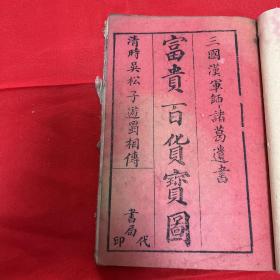 三國漢軍師諸葛遺書
富貴百貨寶圖
清時吳松子遊蜀相傳
書局代印